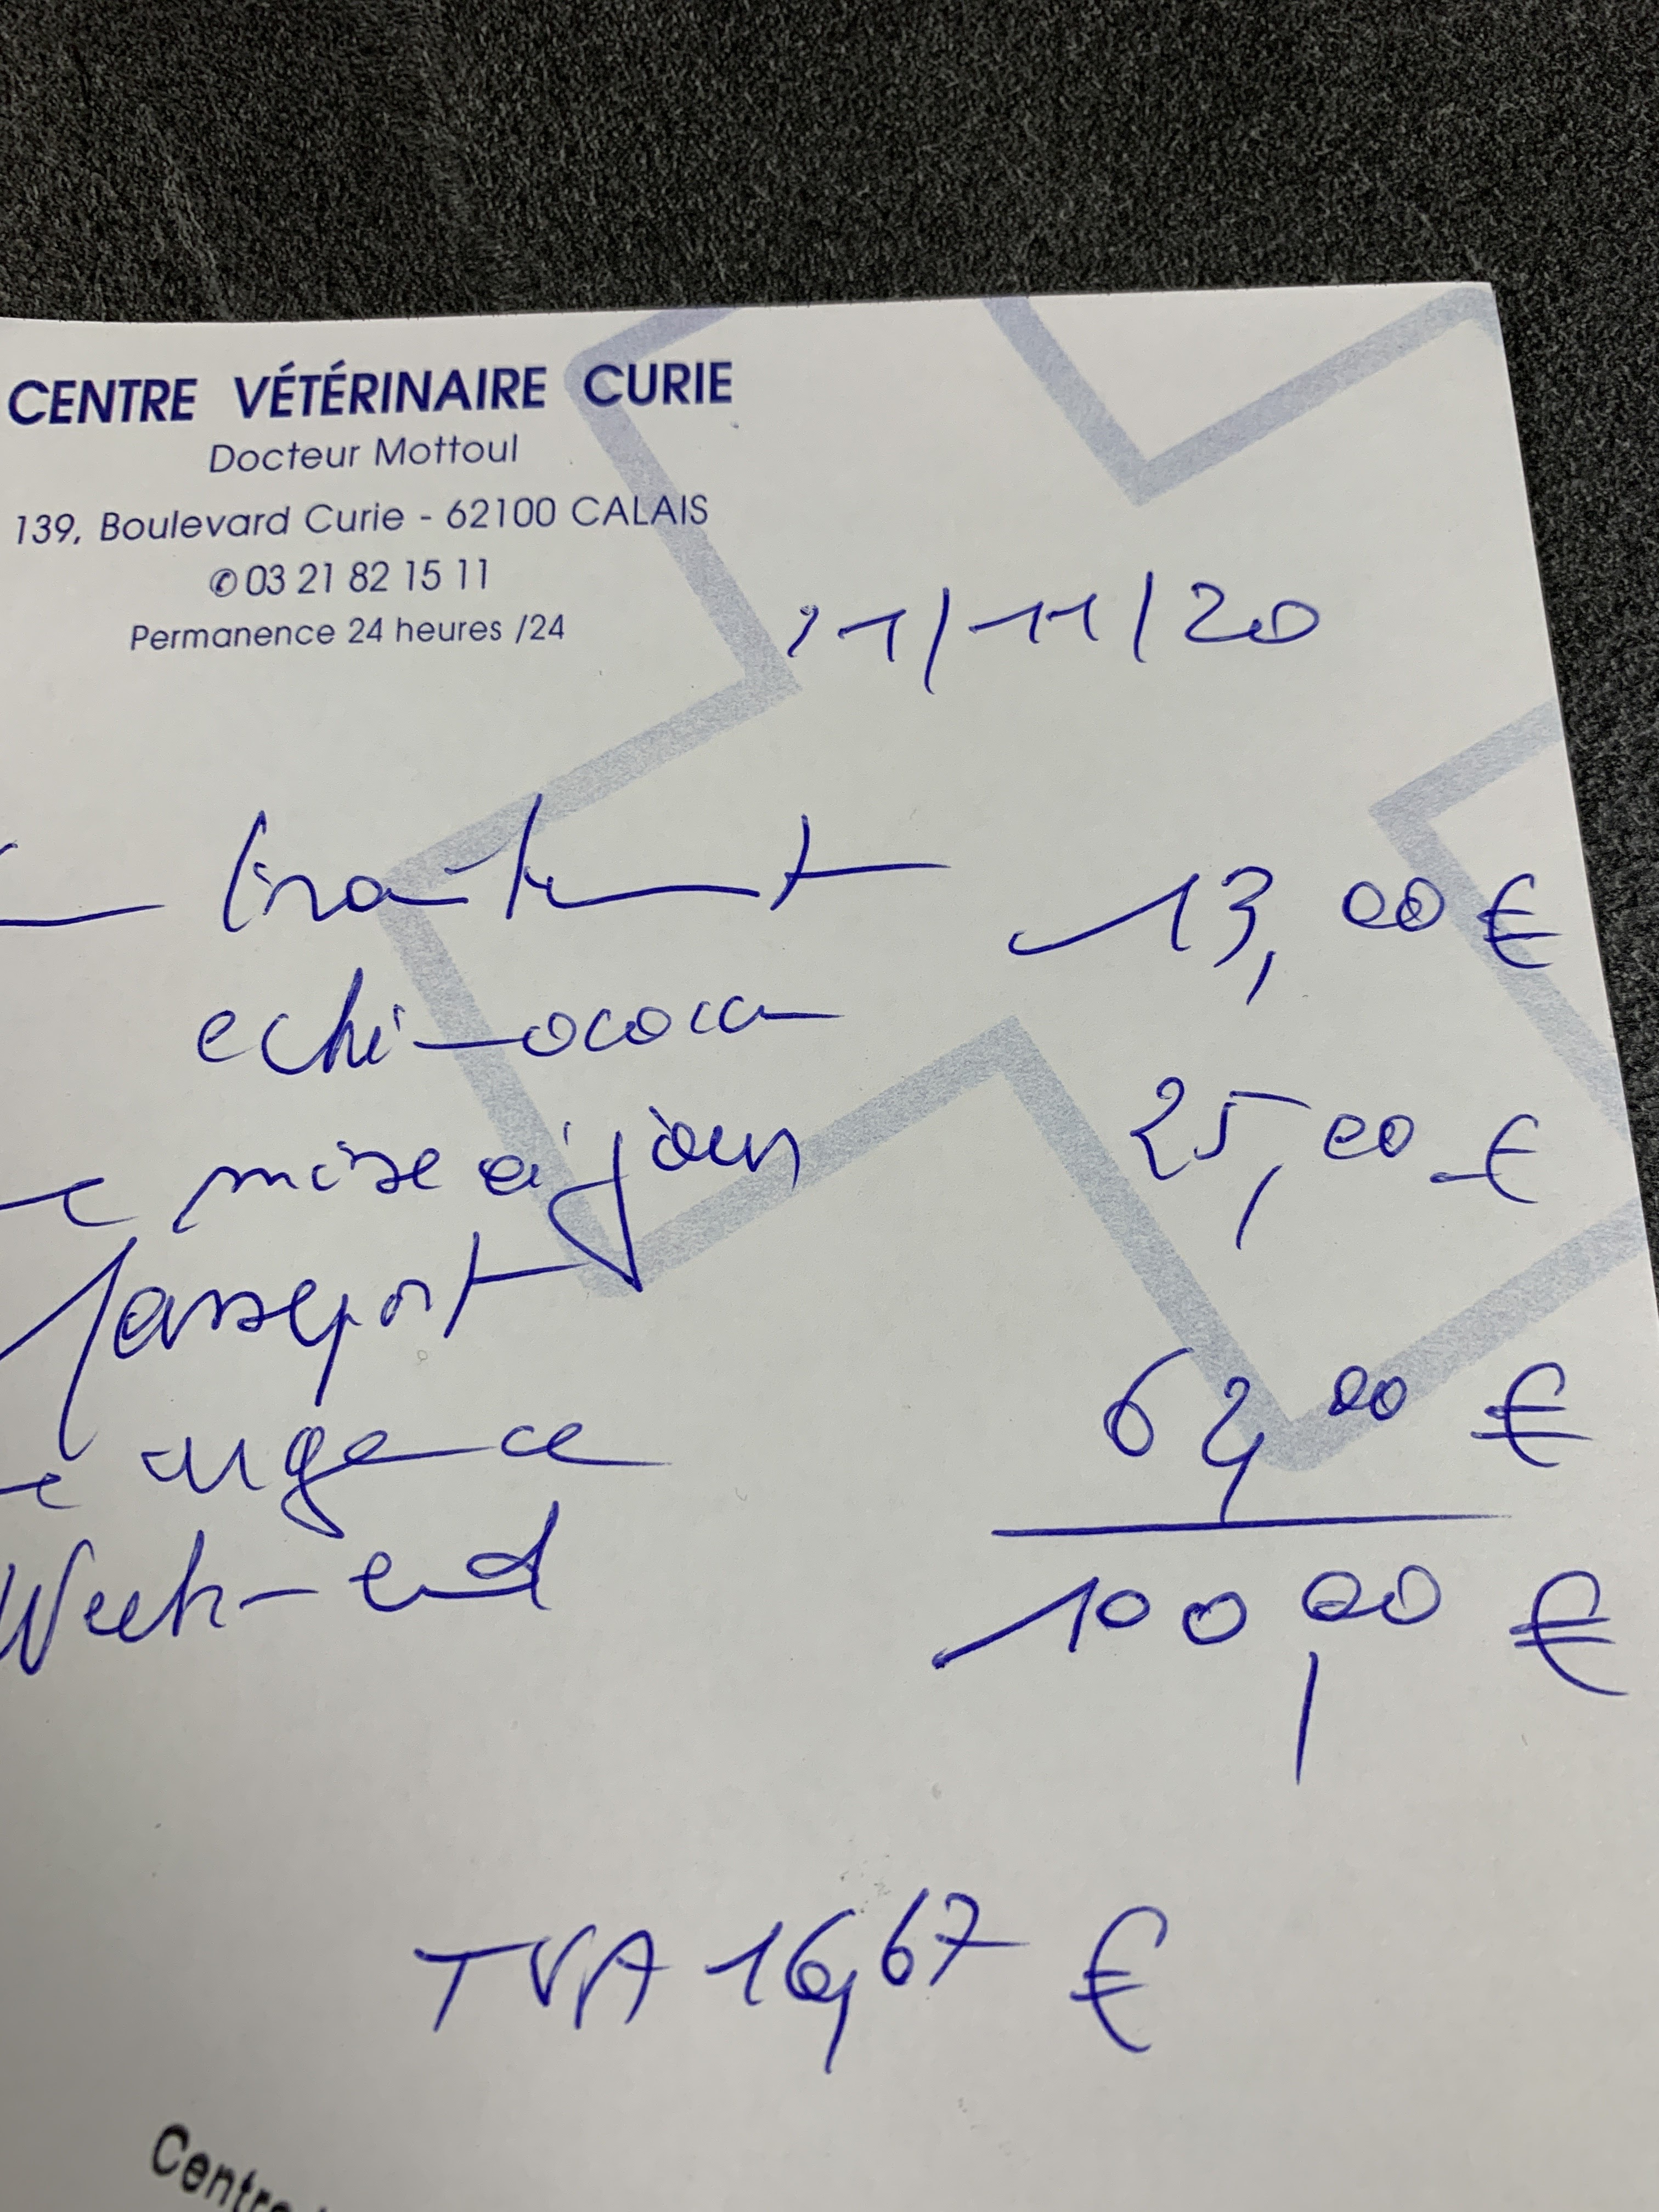 CENTRE VÉTÉRINAIRE CURIE
Docteur Mottoul
139, Boulevard Curie - 62100 CALAIS
✆ 03 21 82 15 11
Permanence 24 heures /24
1/11/20
traitement 13,00 €
echinococcus
mise à jour 25,00 €
passeport
urgence 62,00 €
Week-end
100,00 €
TVA 16,67 €
Centre